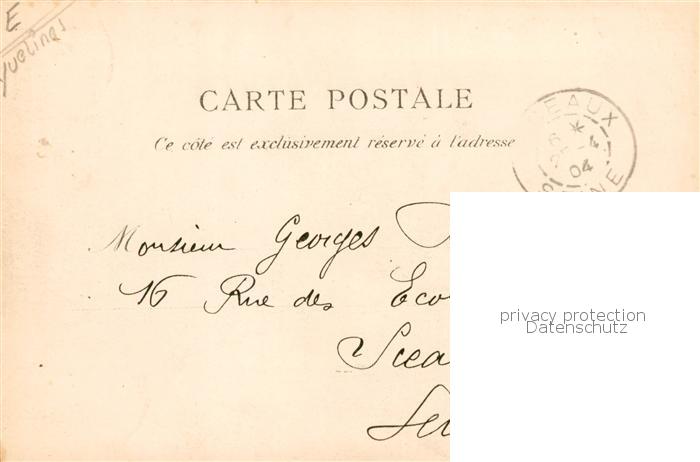 E
Yvelines
CARTE POSTALE
Ce côté est exclusivement réservé à l'adresse
EAUX
04
Monsieur Georges
16 Rue des Eco
Scea
privacy protection
Datenschutz